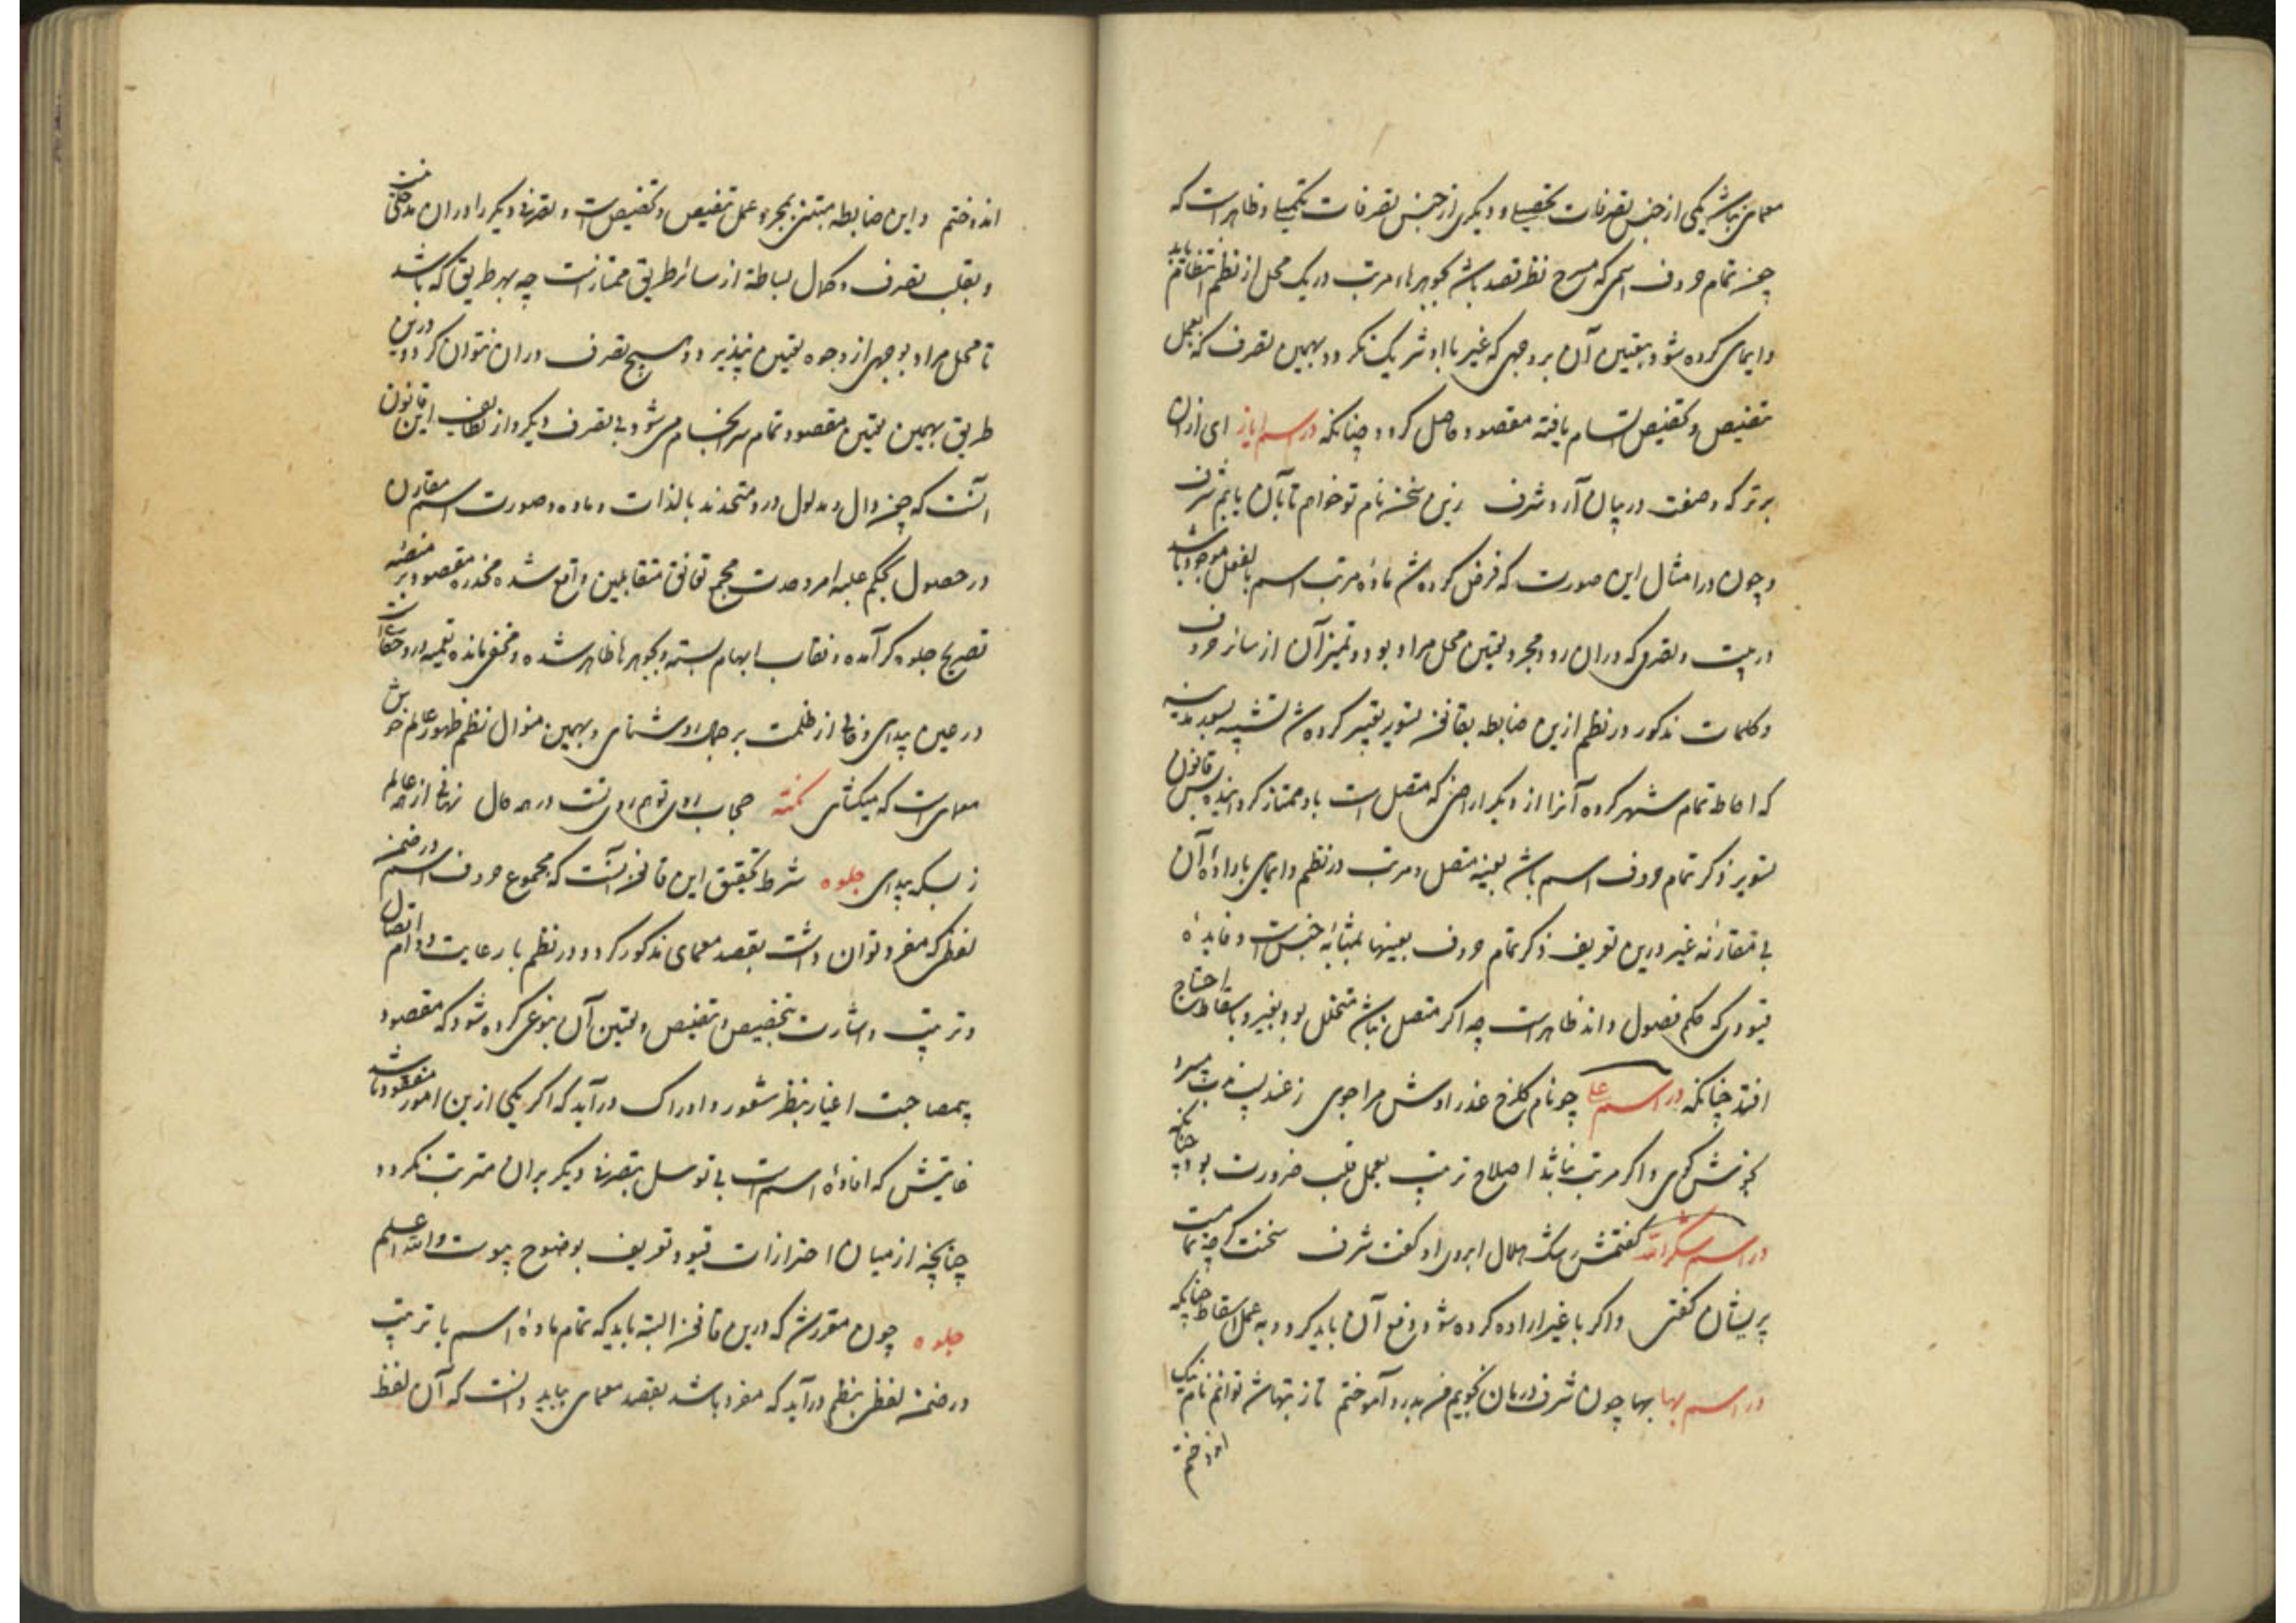 معمای باشد یکی از جنس تصرفات تحصیلی و دیگری از جنس تصرفات تکمیلی و ظاهر است که
چون تمام حروف اسمی که مطرح نظر قصد باشد بجوهرها مرتب در یک محل از نظم انتظام یابد
و ایمای کرده شود بتعین آن بر وجهی که غیر با او شریک نکردد بهمین تصرف که بعمل
تنصیص و تخصیص اتسام یافته مقصود حاصل کردد چنانکه در اسم ایاز ای از ان
برتر که وصفت در بیان آرد شرف زین سخن نام تو خواهم تا بآن یابم شرف
و چون در امثال این صورت که فرض کرده شد ماده مرتب اسم بالفعل موجود باشد
در بیت و تصرفی که دران رود مجرد تعین محل مراد بود و تمیز آن از سائر حروف
و کلمات مذکور در نظم ازین ضابطه بقانون تسویر تعبیر کرده شد تشبیه بسور مدینه
که احاطه تمام شهر کرده آنرا از دیگر اراضی که متصل است باو ممتاز کرداند پس قانون
تسویر ذکر تمام حروف اسم باشد بعینه متصل و مرتب در نظم و ایمای باراده آن
بی مقارنه غیر درین تعریف ذکر تمام حروف بعینها بمثابه جنس است و فایده
قیودی که حکم فصول دارند ظاهرست چه اگر متصل نباشد متخلل بود بغیر و باسقاط احتیاج
افتد چنانکه در اسم علی چو نام کلرخ عذر اوش مراجوی ز عندلیب
کوی و اگر مرتب نباشد اصلاح ترتیب بعمل قلب ضرورت بود چنانکه
در اسم کفتمش رشک هلال ابروی او کفت شرف سخنت کرچه تمامست
پریشان کفتی و اگر با غیر اراده کرده شود دفع آن باید کرد و به عمل اسقاط چنانکه
در اسم بها بها چون شرف درمان نجویم من بدرد آموختم تا ز تنهاش توانم نام نیک
اندوختم
اندوختم و این ضابطه مبتنی بمجرد عمل تنصیص و تخصیص است و تصرفی دیگر را دران مدخلی نیست
و بقلت تصرف و کمال بساطة از سائر طریق ممتازست چه بهر طریقی که باشد
تا محل مراد بوجهی از وجوه تعین نپذیرد هیچ تصرف دران نتوان کرد و درین
طریق بهمین تعین مقصود تمام سرانجام می شود بی تصرف دیگر و از لطایف این قانون
آنست که چون دال و مدلول درو متحدند بالذات و ماده و صورت اسم مقارن
در حصول بحکم غلبه امر وحدت مجمع توافق متقابلین واقع شده مخدره مقصود بر منصه
تصریح جلوه کر آمده و نقاب ابهام بسته و بجوهرها ظاهر شده و مخفی مانده تعمیه درو خفائیست
در عین پیدای و فانی از ظلمت بر جمال روشنای و بهمین منوال نظم ظهور عالم خوش
معمایست که میکشای نکته حجاب روی تو هم روی تست در همه حال نهانی از همه عالم
ز بسکه پیدای جلوه شرط تحقیق این قانون آنست که مجموع حروف اسم در ضمن
لفظی که مفرد توان داشت بقصد معمای مذکور کردد در نظم با رعایت دوام اتصال
و ترتیب و اشارت بتخصیص و تنصیص و تعین آن بنوعی کرده شود که مقصود
بیمصاحبت اغیار بنظر شعور و ادراک درآید که اگر یکی ازین امور مفقود باشد
غایتش که افاده اسم است بی توسل بتصرفی دیگر بران مترتب نکردد
چنانچه از میان احترازات قیود تعریف بوضوح پیوست والله اعلم
جلوه چون مقرر شد که درین قانون البته باید که تمام ماده اسم با ترتیب
در ضمن لفظی بنظم درآید که مفرد باشد بقصد معمای بباید دانست که آن لفظ